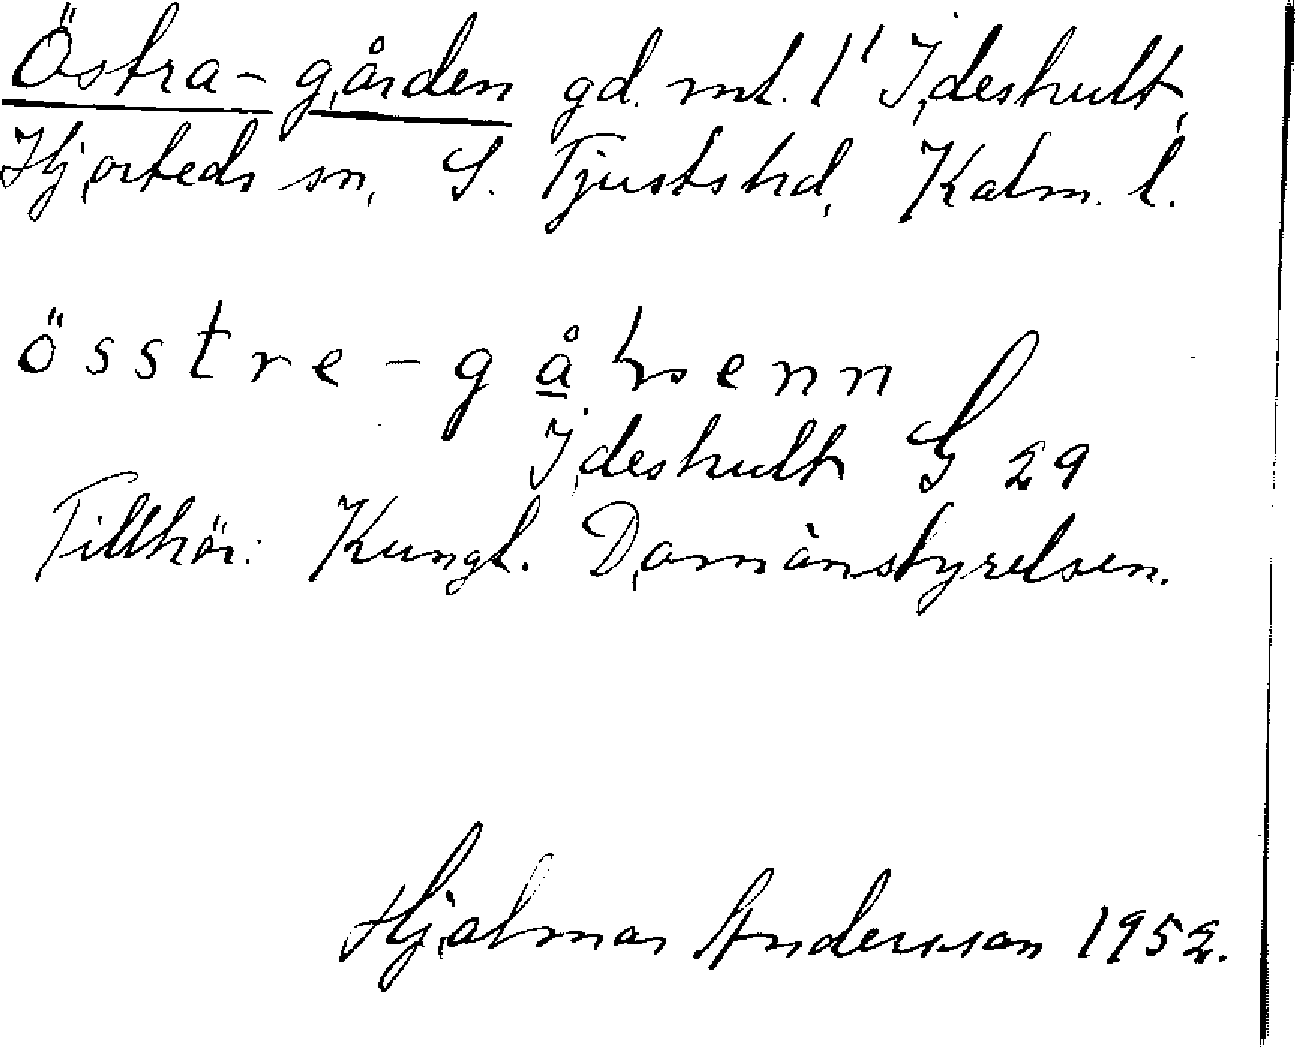 Östra-gården gd. mt. 1' Ideshult,
Hjorteds sn, S. Tjusts hd, Kalm. l.
össtre-gå enn
Ideshult G 29
Tillhör: Kungl. Domänstyrelsen.
Hjalmar Andersson 1952.